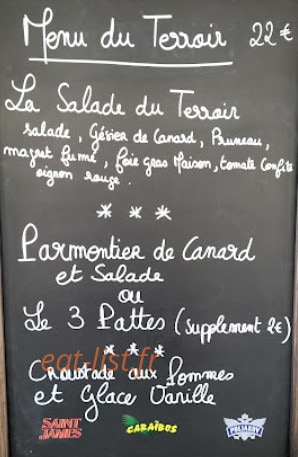 Menu du Terroir 22 €
La Salade du Terroir
salade, Gésier de Canard, Pruneau,
magret fumé, foie gras Maison, tomate Confite
oignon rouge.
* * *
Parmentier de Canard
et Salade
ou
Le 3 Pattes (supplement 2€)
* * *
eat-list.fr
Croustade aux Pommes
et Glace Vanille
SAINT JAMES
CARAÏBOS
PULIGNY